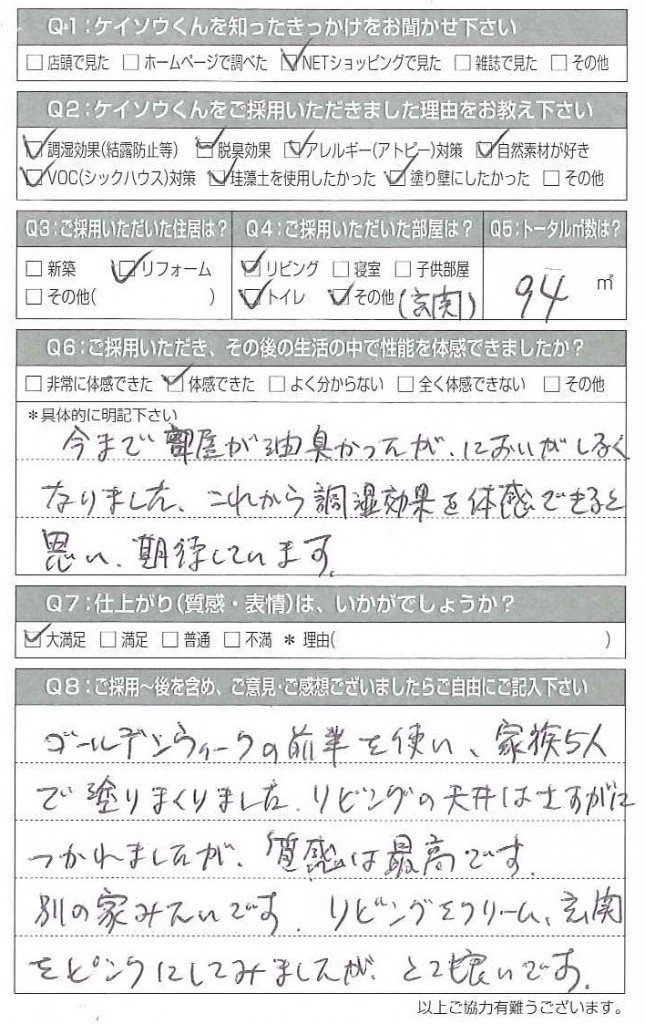 Q1:ケイソウくんを知ったきっかけをお聞かせ下さい
□店頭で見た □ホームページで調べた ☑NETショッピングで見た □雑誌で見た □その他
Q2:ケイソウくんをご採用いただきました理由をお教え下さい
☑調湿効果(結露防止等) ☑脱臭効果 ☑アレルギー(アトピー)対策 ☑自然素材が好き
☑VOC(シックハウス)対策 ☑珪藻土を使用したかった ☑塗り壁にしたかった □その他
Q3:ご採用いただいた住居は?
□新築 ☑リフォーム
□その他( )
Q4:ご採用いただいた部屋は?
☑リビング □寝室 □子供部屋
☑トイレ ☑その他(玄関)
Q5:トータル㎡数は?
94 ㎡
Q6:ご採用いただき、その後の生活の中で性能を体感できましたか?
□非常に体感できた ☑体感できた □よく分からない □全く体感できない □その他
*具体的に明記下さい
今まで部屋が油臭かったが、においがしなく
なりました、これから調湿効果を体感できると
思い、期待しています。
Q7:仕上がり(質感・表情)は、いかがでしょうか?
☑大満足 □満足 □普通 □不満 * 理由( )
Q8:ご採用〜後を含め、ご意見・ご感想ございましたらご自由にご記入下さい
ゴールデンウィークの前半を使い、家族5人
で塗りまくりました。リビングの天井はさすがに
つかれましたが、質感は最高です。
別の家みたいです。リビングをクリーム、玄関
をピンクにしてみましたが、とて良いです。
以上ご協力有難うございます。